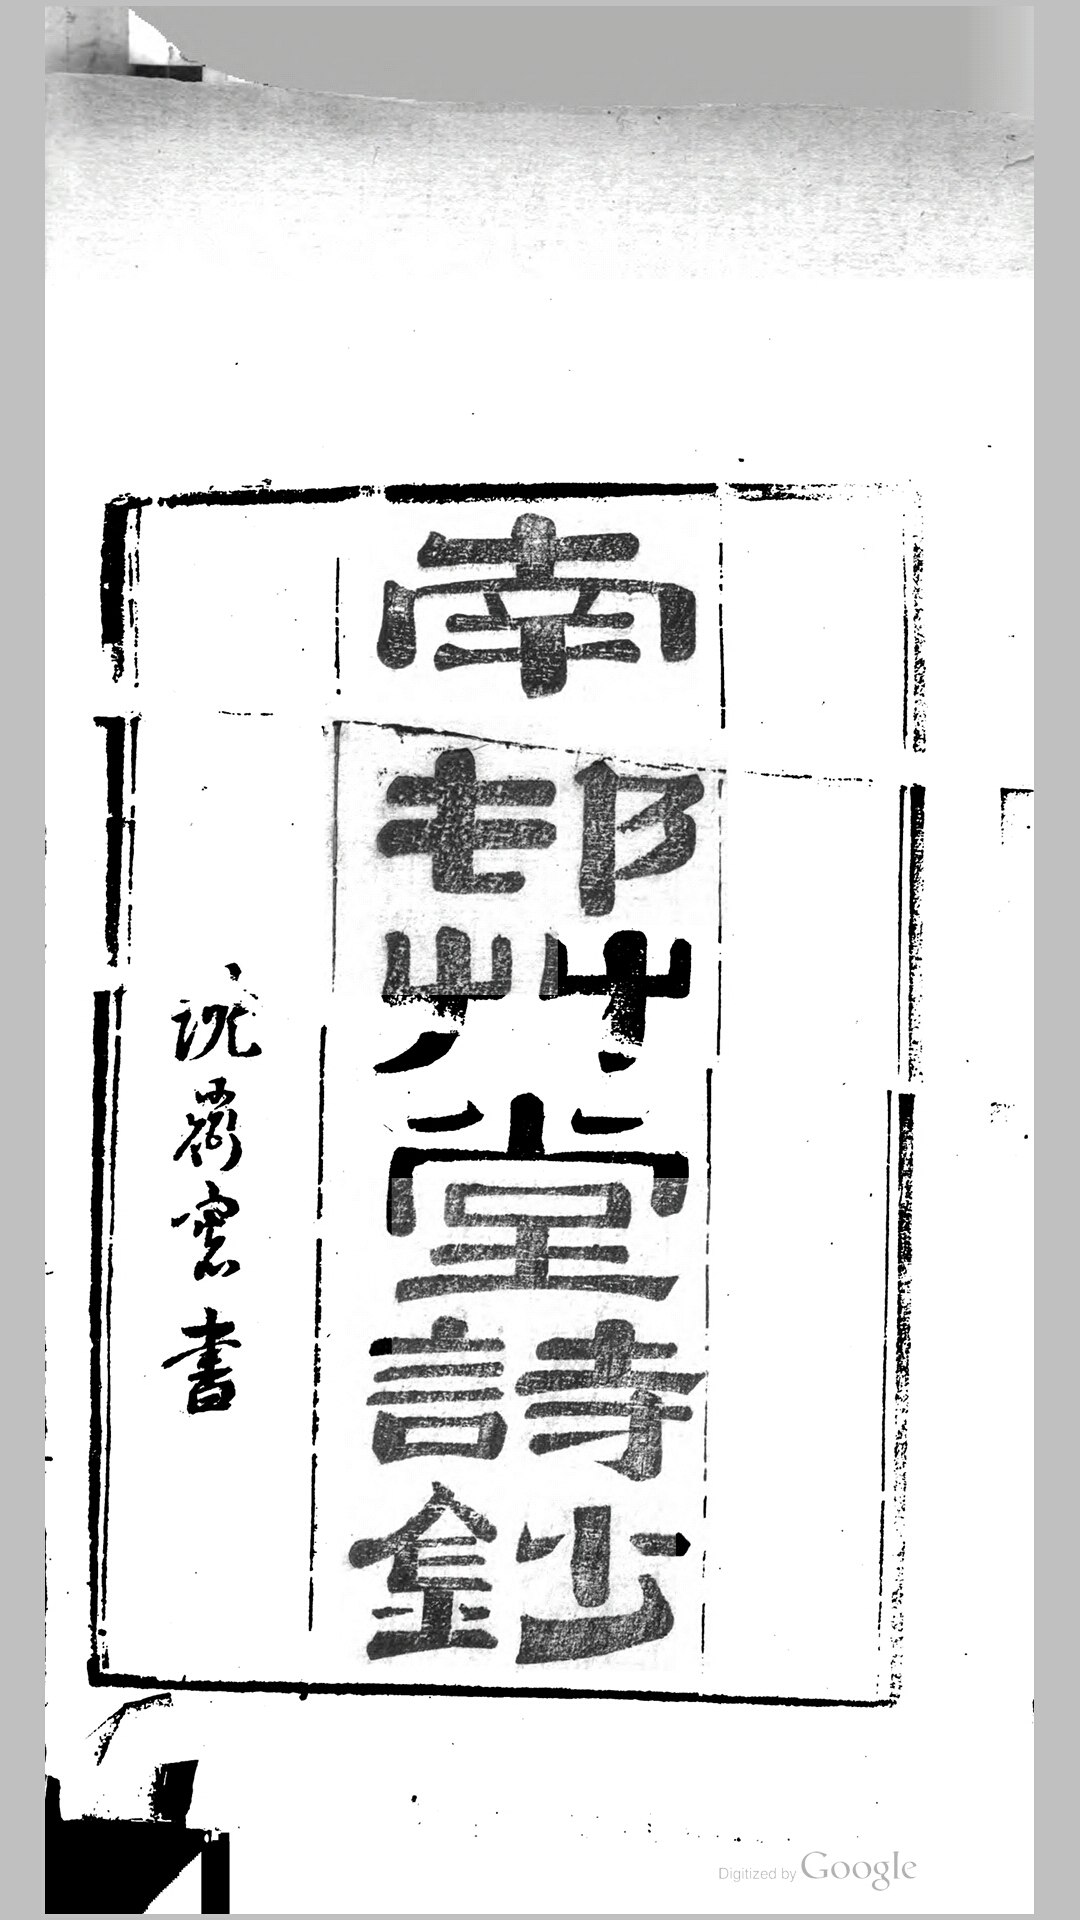 南邨艸堂詩鈔
沈道寬書
Digitized by Google